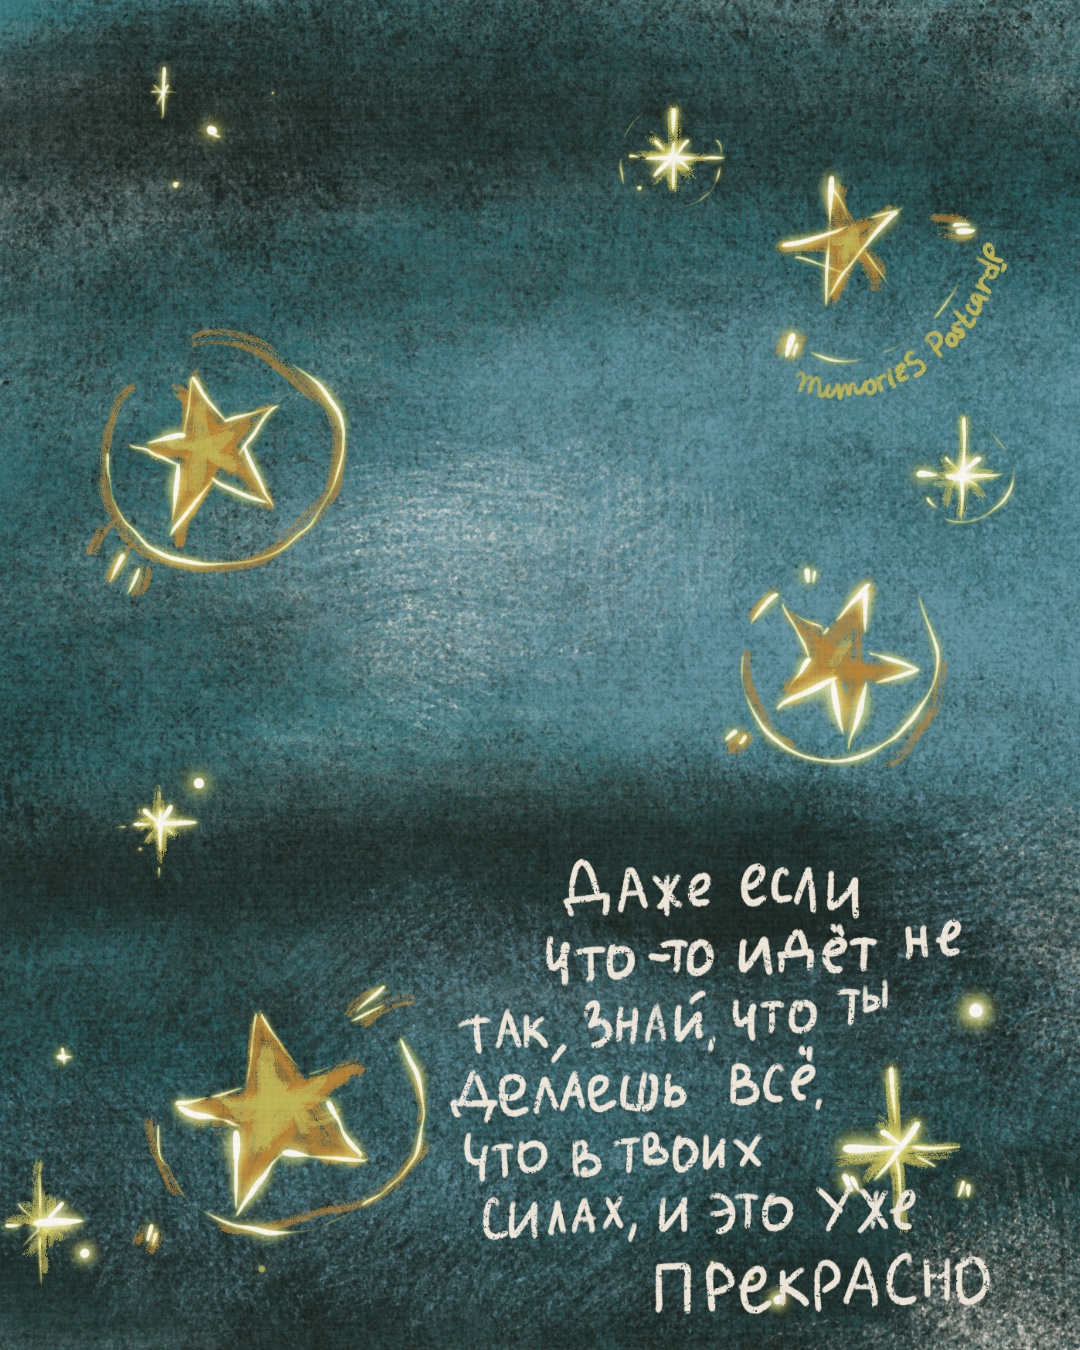 Memories Postcards
Даже если
что-то идёт не
так, знай, что ты
делаешь всё,
что в твоих
силах, и это уже
прекрасно